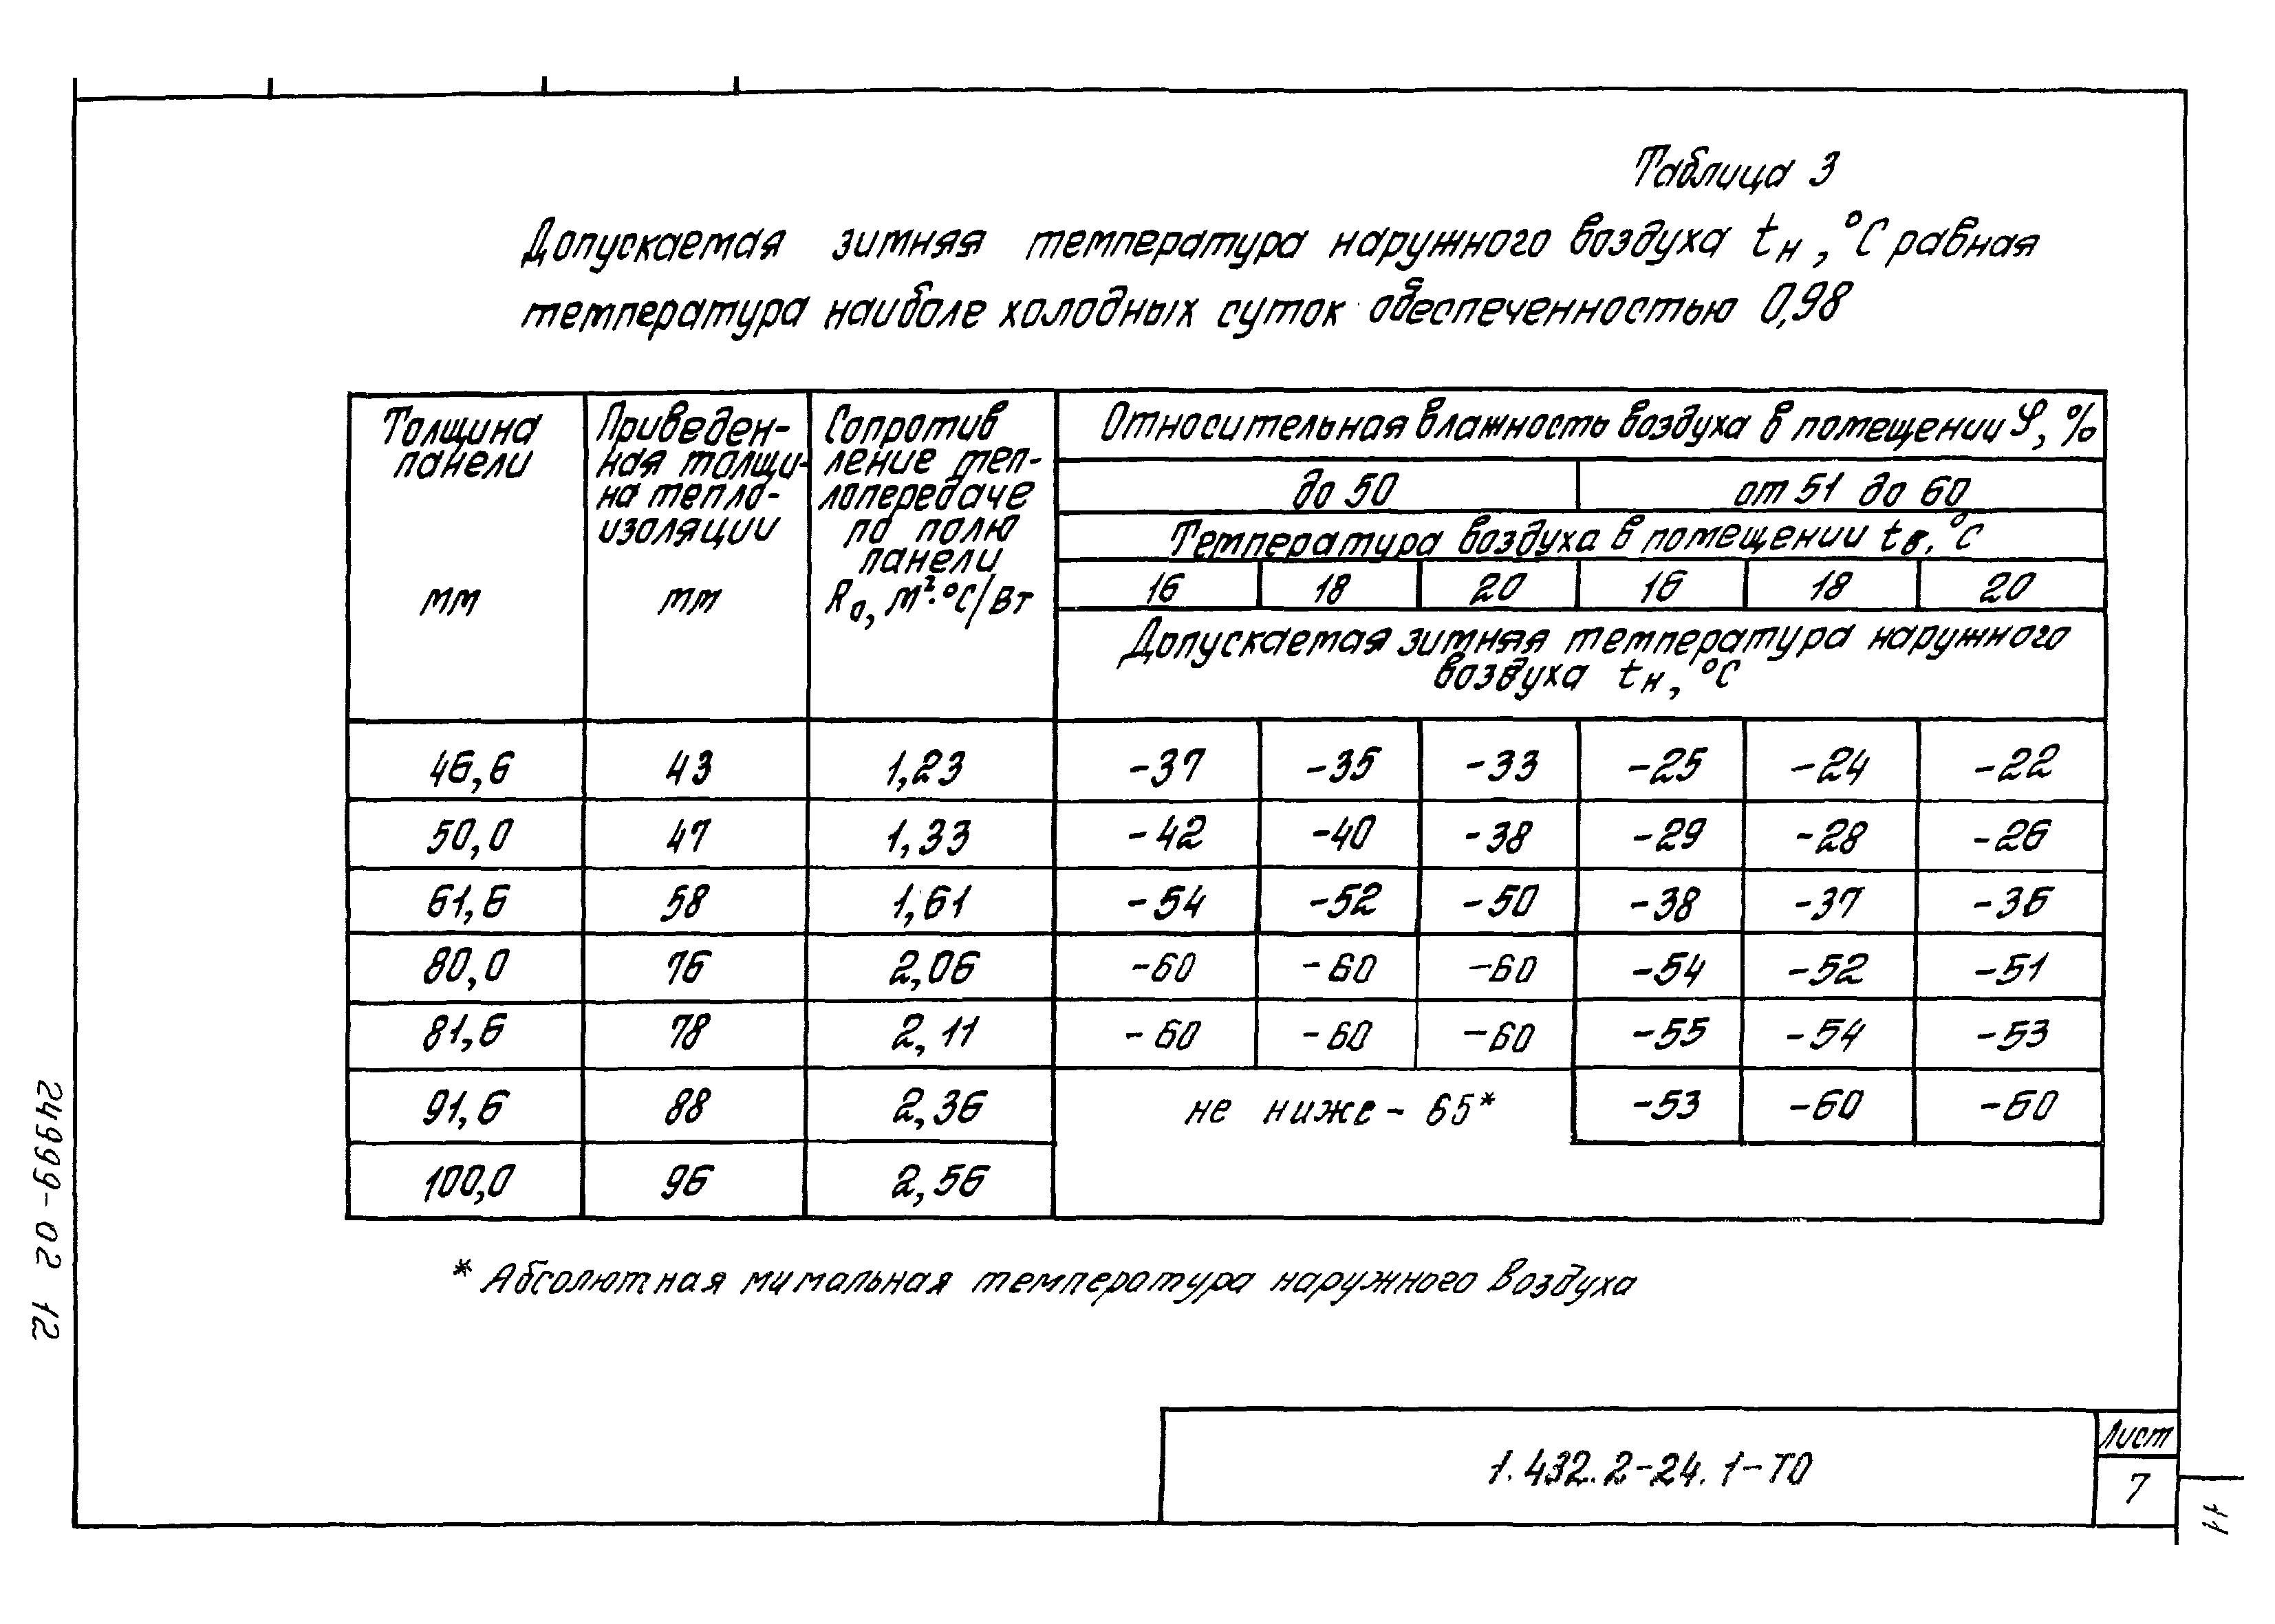 Таблица 3
Допускаемая зимняя температура наружного воздуха tн, °С равная
температура наиболе холодных суток обеспеченностью 0,98
Толщина
панели
мм
Приведен-
ная толщи-
на тепло-
изоляции
мм
Сопротив
ление теп-
лопередаче
по полю
панели
R₀, м²·°С/Вт
Относительная влажность воздуха в помещении φ, %
до 50 от 51 до 60
Температура воздуха в помещении tв, °С
16 18 20 16 18 20
Допускаемая зимняя температура наружного
воздуха tн, °С
46,6 43 1,23 -37 -35 -33 -25 -24 -22
50,0 47 1,33 -42 -40 -38 -29 -28 -26
61,6 58 1,61 -54 -52 -50 -38 -37 -36
80,0 76 2,06 -60 -60 -60 -54 -52 -51
81,6 78 2,11 -60 -60 -60 -55 -54 -53
91,6 88 2,36 не ниже - 65* -53 -60 -60
100,0 96 2,56
* Абсолютная мимальная температура наружного воздуха
1.432.2-24.1-ТО
Лист
7
24999-02 12
11